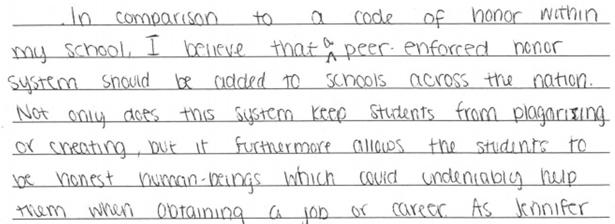 In comparison to a code of honor within
my school, I believe that a peer-enforced honor
system should be added to schools across the nation.
Not only does this system keep students from plagarizing
or cheating, but it furthermore allows the students to
be honest human-beings which could undeniably help
them when obtaining a job or career. As Jennifer